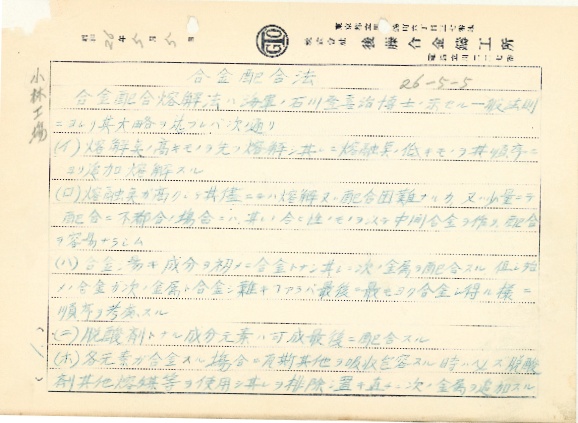 株式会社 後藤合金鋳工所
昭和26年5月5日
26-5-5
小林工場
合金配合法
合金配合熔解法ハ海軍ノ石川登喜治博士ノ示セル一般法則
ニヨリ其大略ヲ述フレバ次ノ通リ
(イ)熔解点ノ高キモノヲ先ツ熔解シ其レニ熔融点ノ低キモノヲ其順序ニ
ヨリ添加熔解スル
(ロ)熔融点ガ高クシテ其儘ニテハ熔解又ハ配合困難ナルカ又ハ少量ニテ
配合ニ不都合ノ場合ニハ
中間合金ヲ作リ配合
ヲ容易ナラシム
(ハ)合金シ易キ成分ヲ初メニ合金トナシ其レニ次ノ金属ヲ配合スル 但シ始
メノ合金ガ次ノ金属ト合金シ難キアラバ最後ニ最モヨク合金シ得ル様ニ
順序ヲ考慮スル
(ニ)脱酸剤トナル成分元素ハ可成最後ニ配合スル
(ホ)各元素ガ合金スル場合ニ瓦斯其他ヲ吸収包容スル時ハ 脱酸
剤其他熔媒等ヲ使用シ其レヲ排除シ 次ノ金属ヲ添加スル